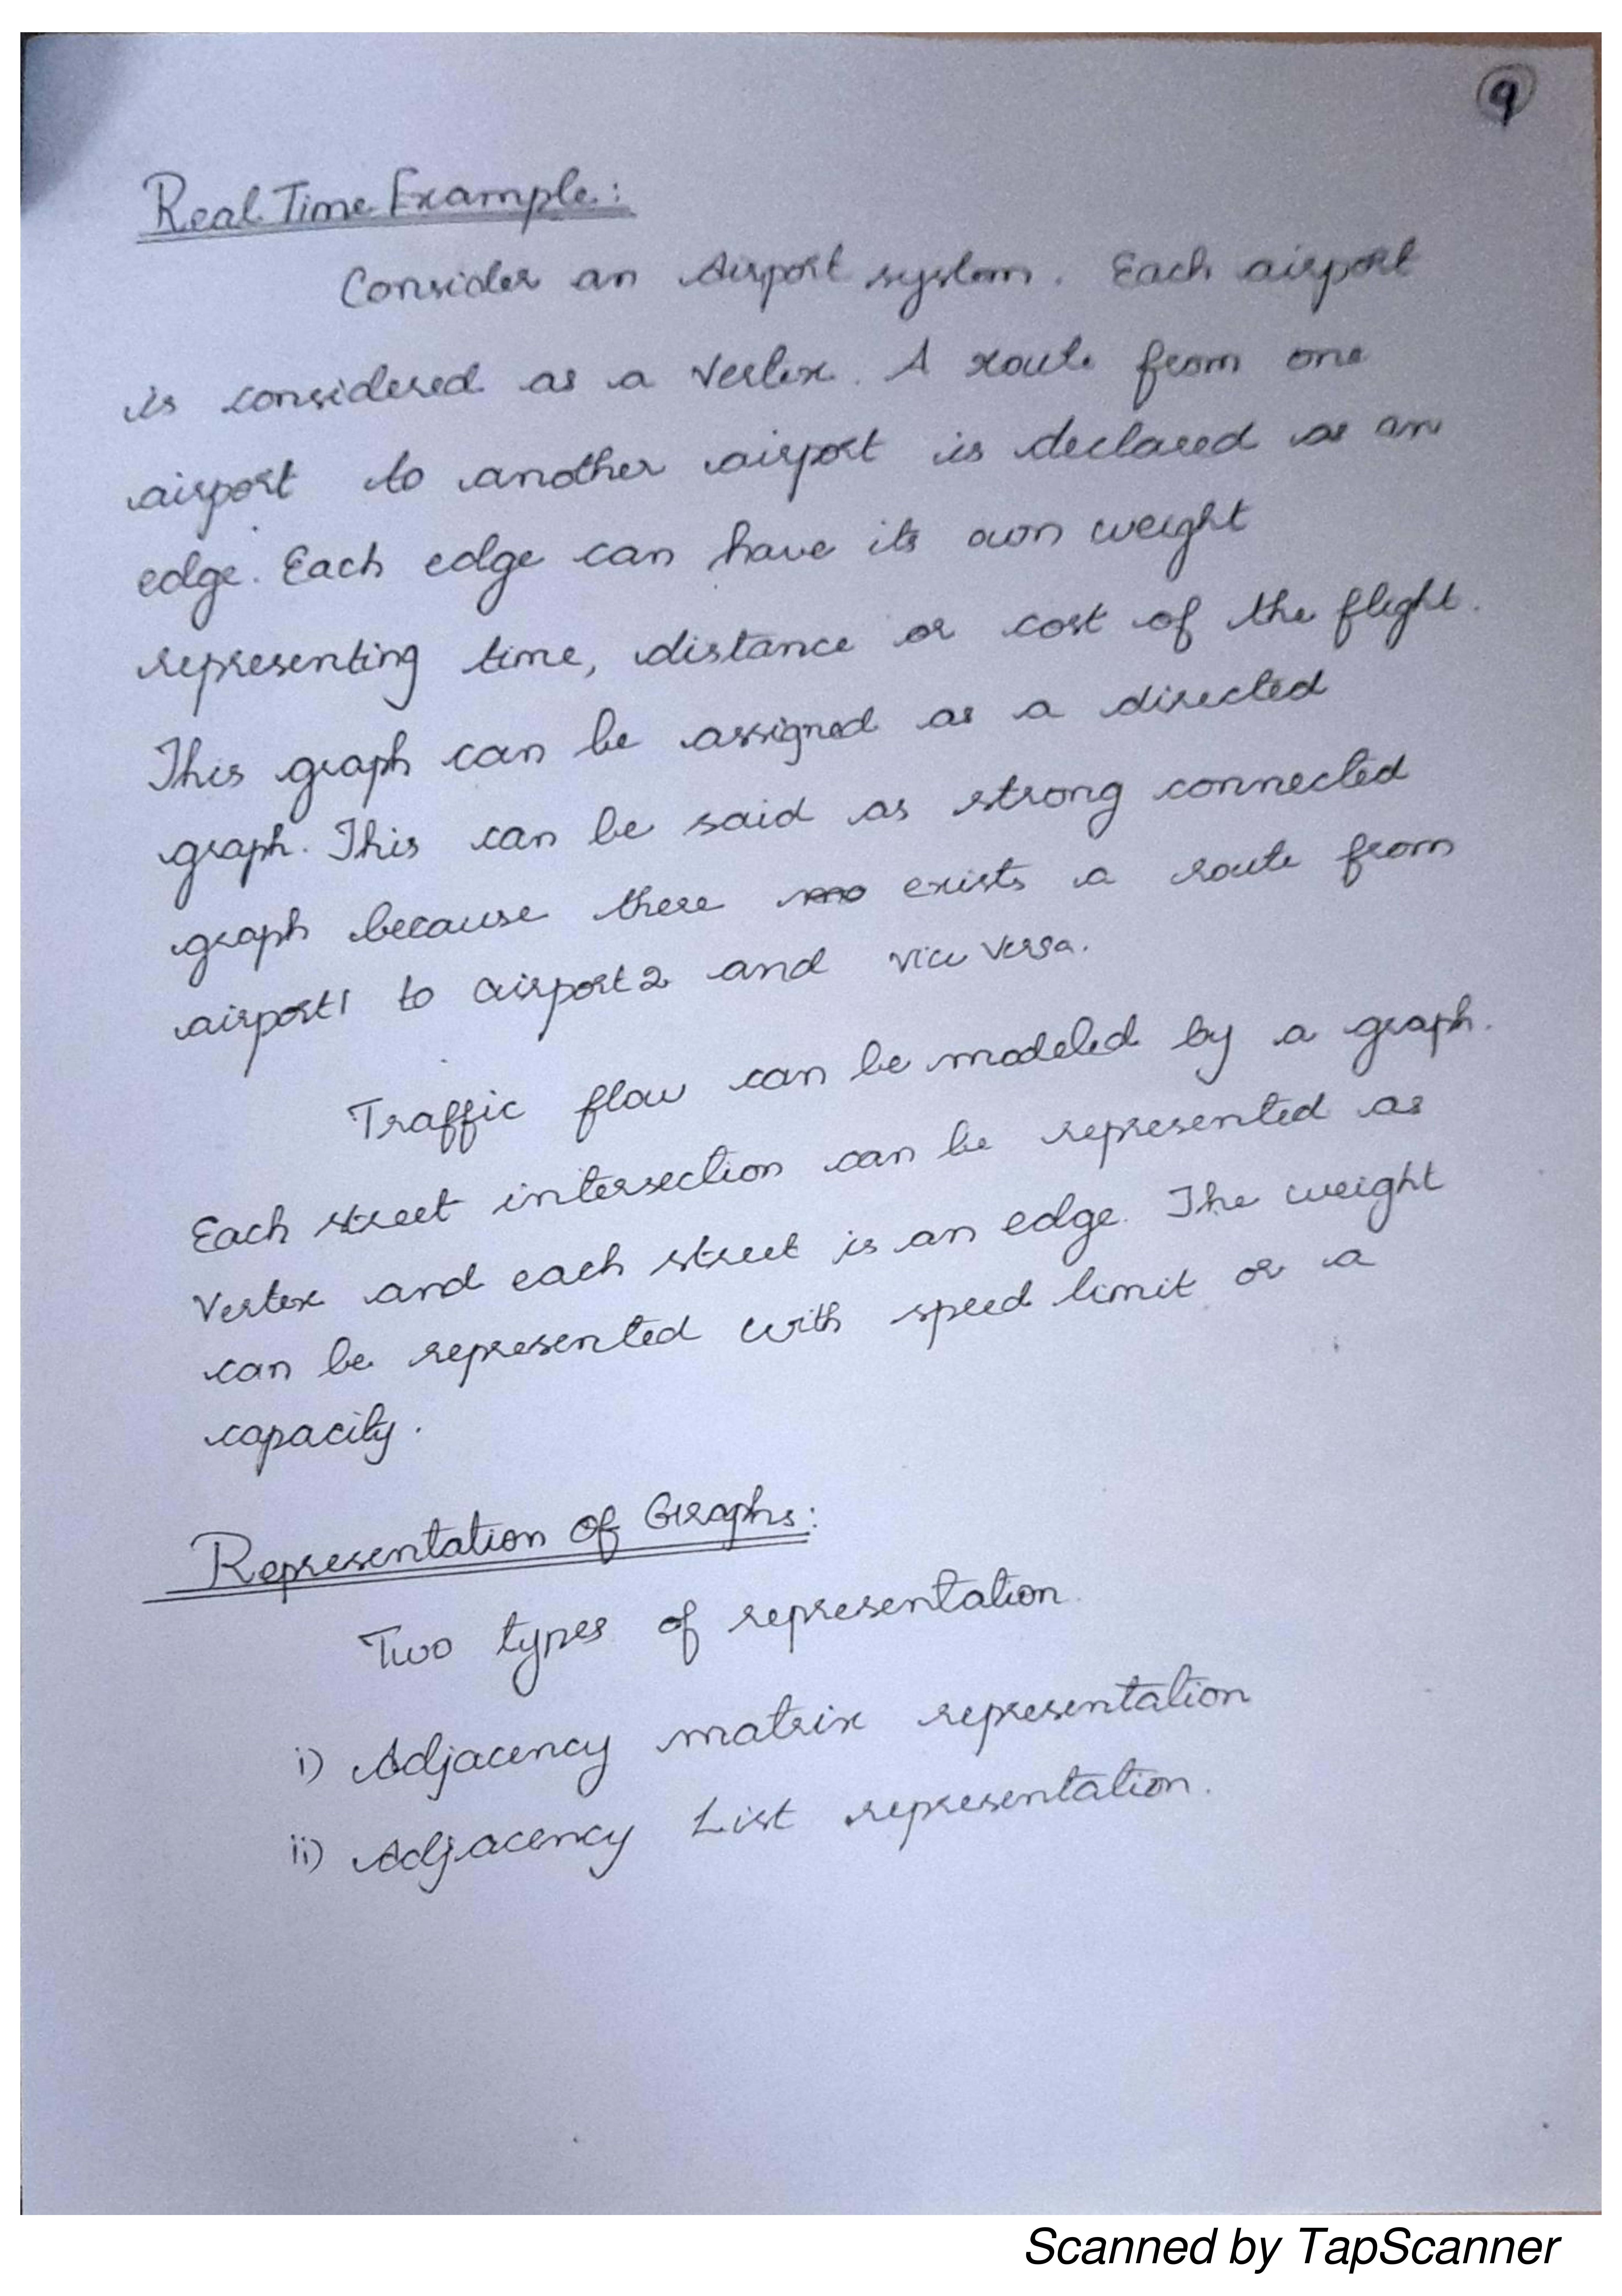 9
Real Time Example:
Consider an Airport system. Each airport
is considered as a Vertex. A route from one
airport to another airport is declared as an
edge. Each edge can have its own weight
representing time, distance or cost of the flight.
This graph can be assigned as a directed
graph. This can be said as strong connected
graph because there no exists a route from
airport1 to airport2 and vice versa.
Traffic flow can be modeled by a graph.
Each street intersection can be represented as
Vertex and each street is an edge. The weight
can be represented with speed limit or a
capacity.
Representation of Graphs:
Two types of representation.
i) Adjacency matrix representation
ii) Adjacency List representation.
Scanned by TapScanner